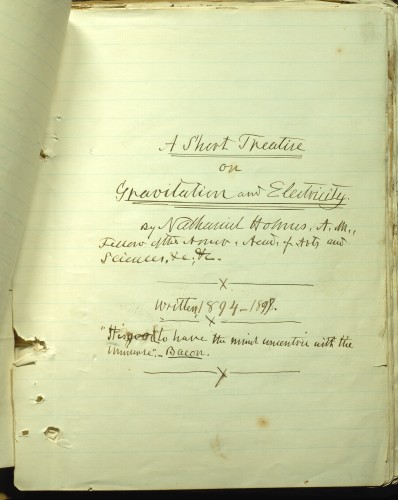 A Short Treatise
on
Gravitation and Electricity.
By Nathaniel Holmes, A. M.,
Fellow of the Amer. Acad. of Arts and
Sciences, &c., &c.
Written 1894-1898.
to have the mind concentric with the
Universe". - Bacon.